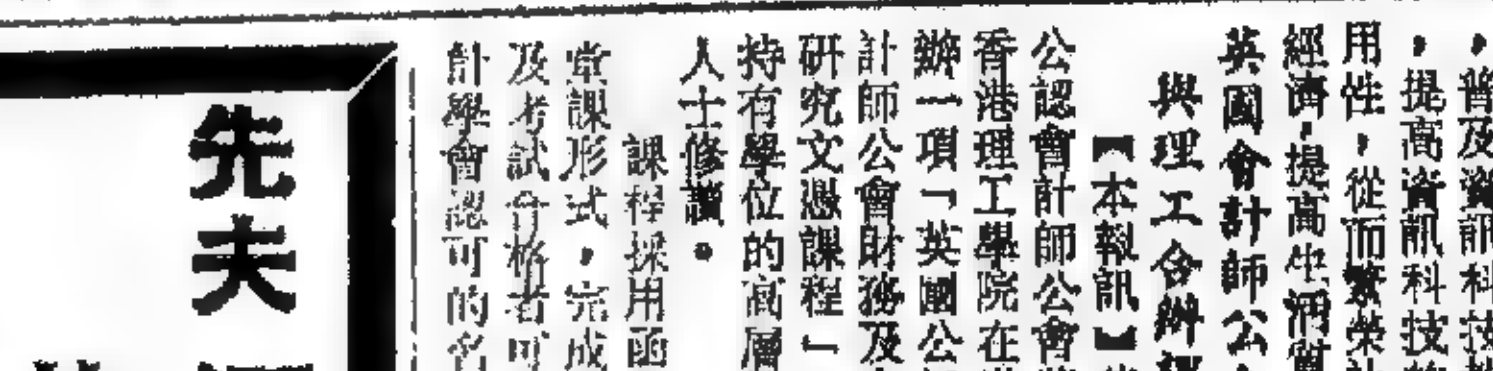 ，普及資訊科技
，提高資訊科技
用性，從而繁榮
經濟，提高生活質
英國會計師公
與理工合辦
【本報訊】
公認會計師公會
香港理工學院在
辦一項「英國公
計師公會財務及
研究文憑課程」
持有學位的高層
人士修讀。
課程採用函
堂課形式，完成
及考試合格者可
計學會認可的名
先夫